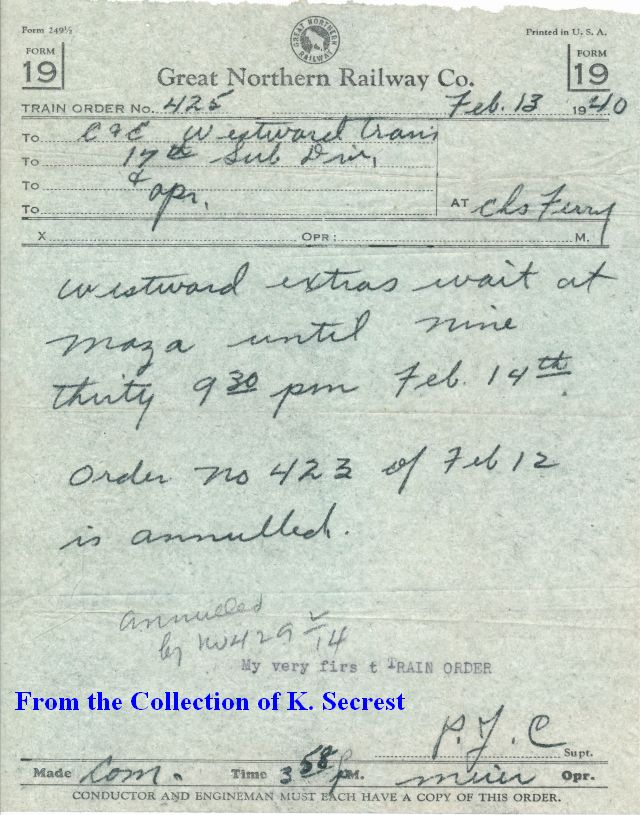 Form 249½
Printed in U. S. A.
FORM
19
GREAT NORTHERN RAILWAY
FORM
19
Great Northern Railway Co.
TRAIN ORDER No. 425 Feb. 13 1940
To C&E Westward trans
To 17th Sub Div,
To & opr.
To
AT Chs Ferry
X OPR: M.
westward extras wait at
maza until nine
thirty 9 30 pm Feb. 14th.
Order no 423 of Feb 12
is annulled.
annulled
by No 429 2/14
My very firs t TRAIN ORDER
From the Collection of K. Secrest
P. J. C Supt.
Made Com. Time 3 58 P M. meier Opr.
CONDUCTOR AND ENGINEMAN MUST EACH HAVE A COPY OF THIS ORDER.